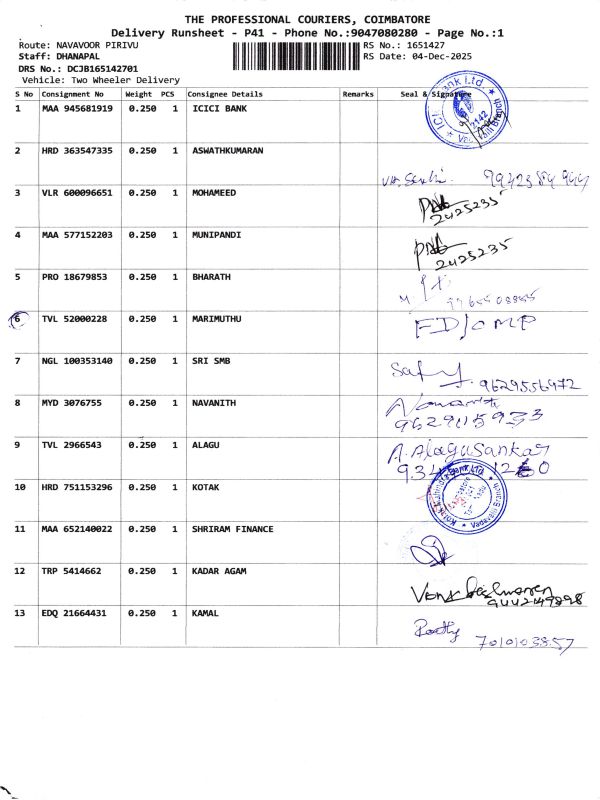 THE PROFESSIONAL COURIERS, COIMBATORE
Delivery Runsheet - P41 - Phone No.:9047080280 - Page No.:1
Route: NAVAVOOR PIRIVU RS No.: 1651427
Staff: DHANAPAL RS Date: 04-Dec-2025
DRS No.: DCJB165142701
Vehicle: Two Wheeler Delivery
S No Consignment No Weight PCS Consignee Details Remarks Seal & Signature
1 MAA 945681919 0.250 1 ICICI BANK
2 HRD 363547335 0.250 1 ASWATHKUMARAN
3 VLR 600096651 0.250 1 MOHAMEED 2425235
4 MAA 577152203 0.250 1 MUNIPANDI 2425235
5 PRO 18679853 0.250 1 BHARATH
6 TVL 52000228 0.250 1 MARIMUTHU FD/OMP
7 NGL 100353140 0.250 1 SRI SMB 9629556972
8 MYD 3076755 0.250 1 NAVANITH
9 TVL 2966543 0.250 1 ALAGU A. AlaguSankar
10 HRD 751153296 0.250 1 KOTAK
11 MAA 652140022 0.250 1 SHRIRAM FINANCE
12 TRP 5414662 0.250 1 KADAR AGAM
13 EDQ 21664431 0.250 1 KAMAL 7010103857